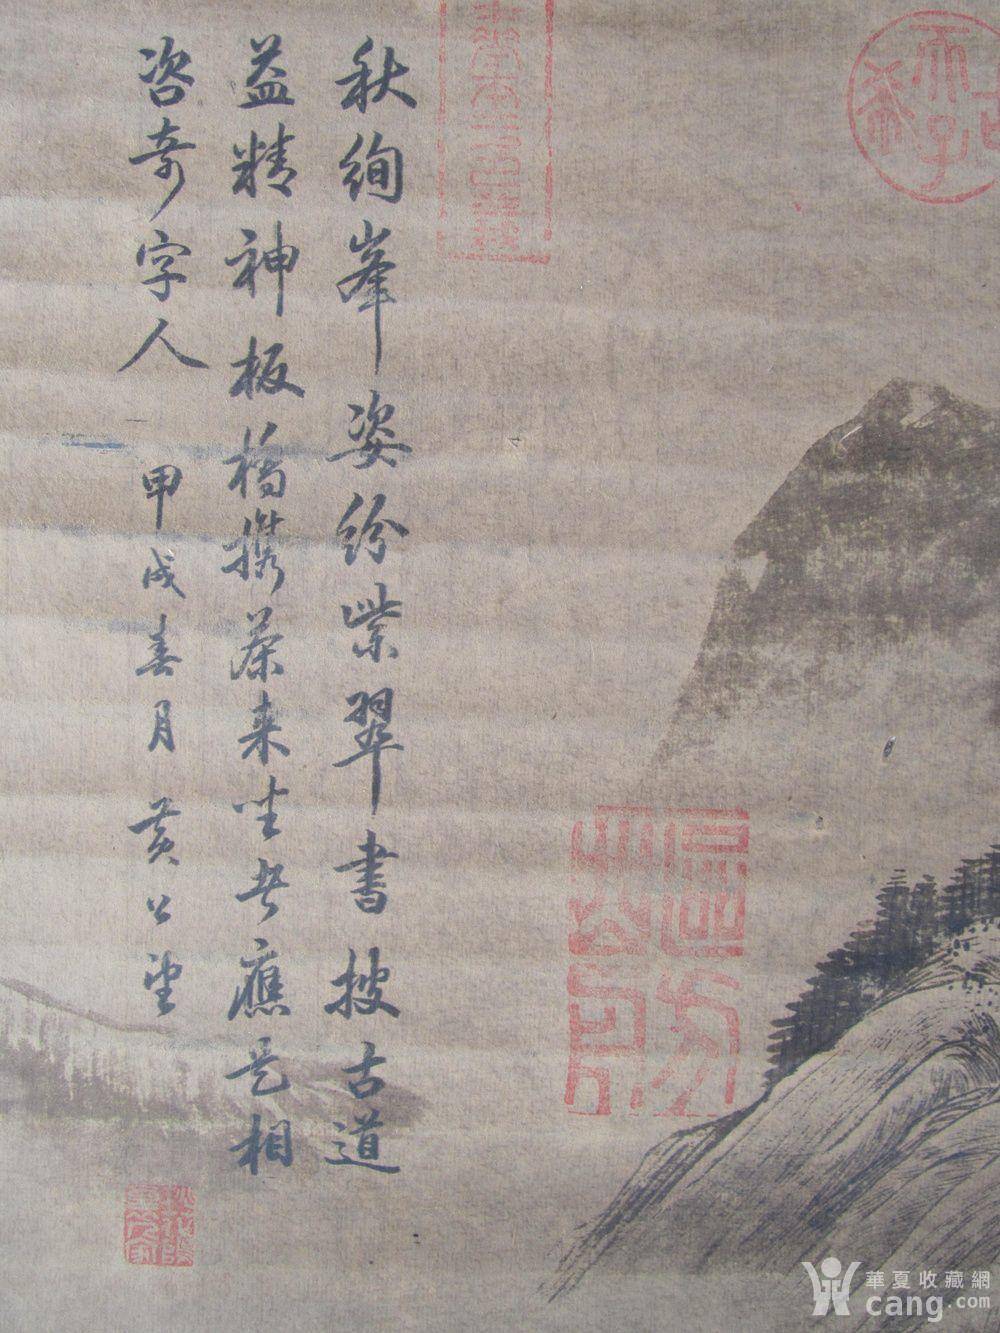 秋絢峯姿紛紫翠書披古道
益精神板橋攜茶来坐者應是相
咨奇字人
甲戌春月黄公望
華夏收藏網
cang.com